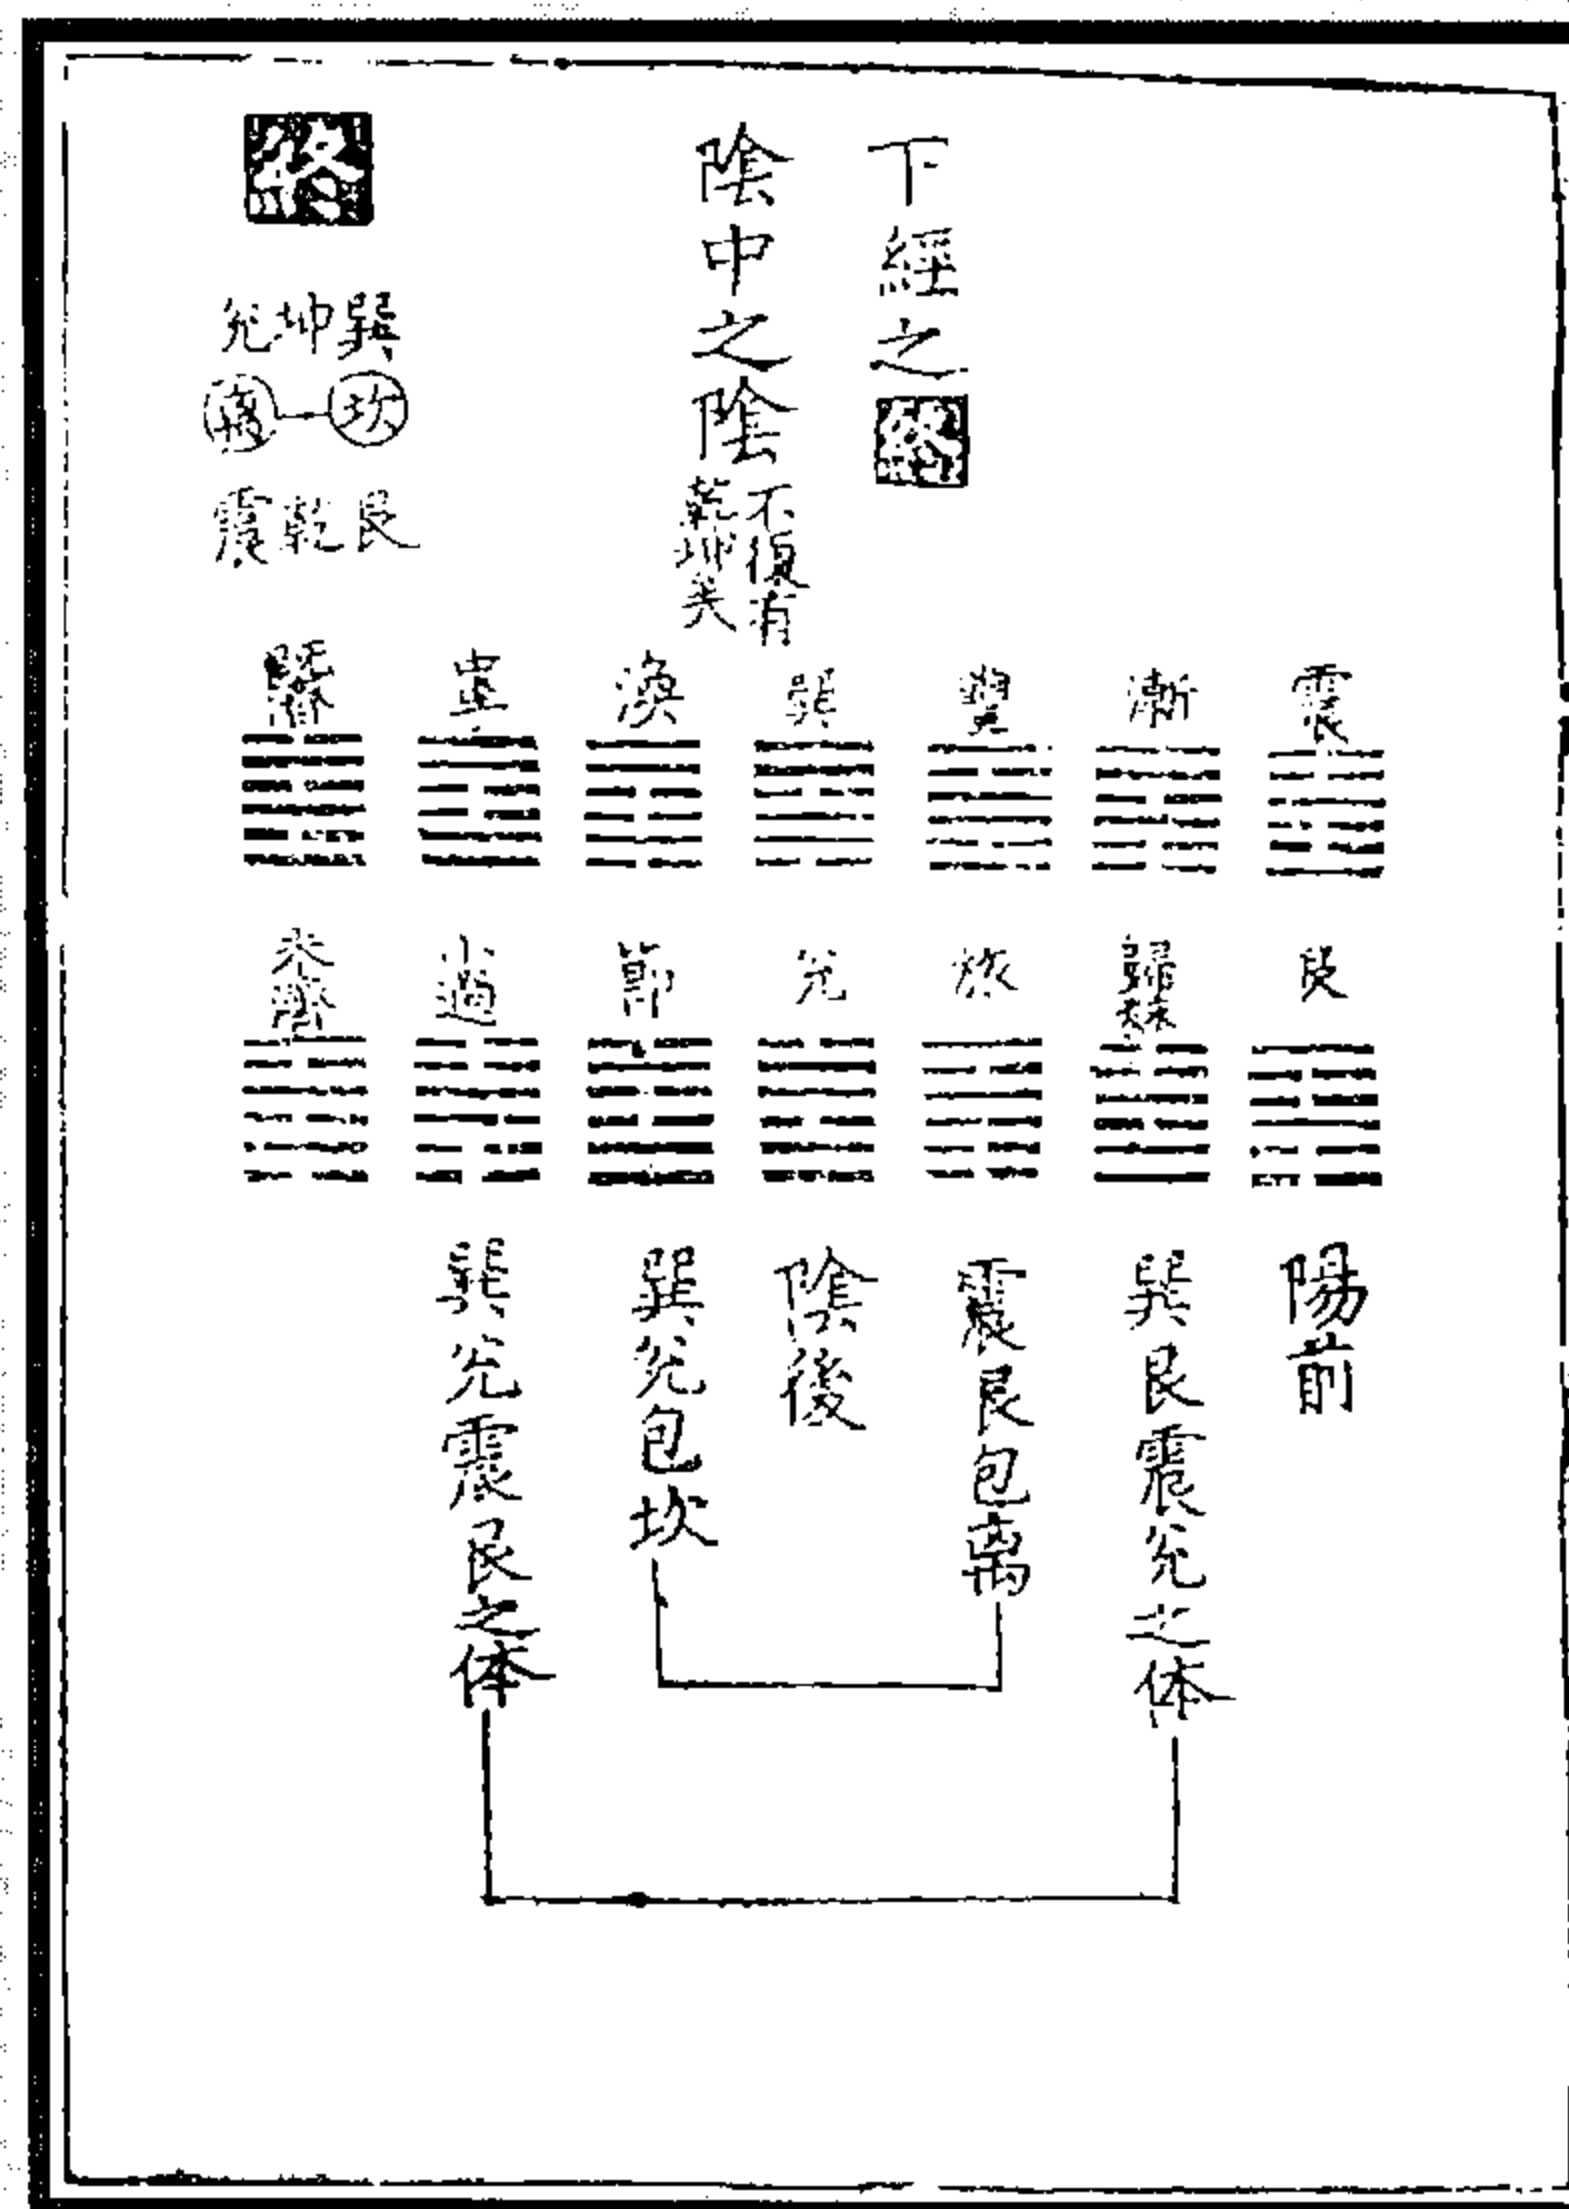 下經之終
陰中之陰
不復有
乾坤矣
終
巽坤兌
坎 離
艮乾震
震 漸 豐 巽 渙 中孚 既濟
艮 歸妹 旅 兌 節 小過 未濟
陽前
巽艮震兌之体
震艮包离
陰後
巽兌包坎
巽兌震艮之体